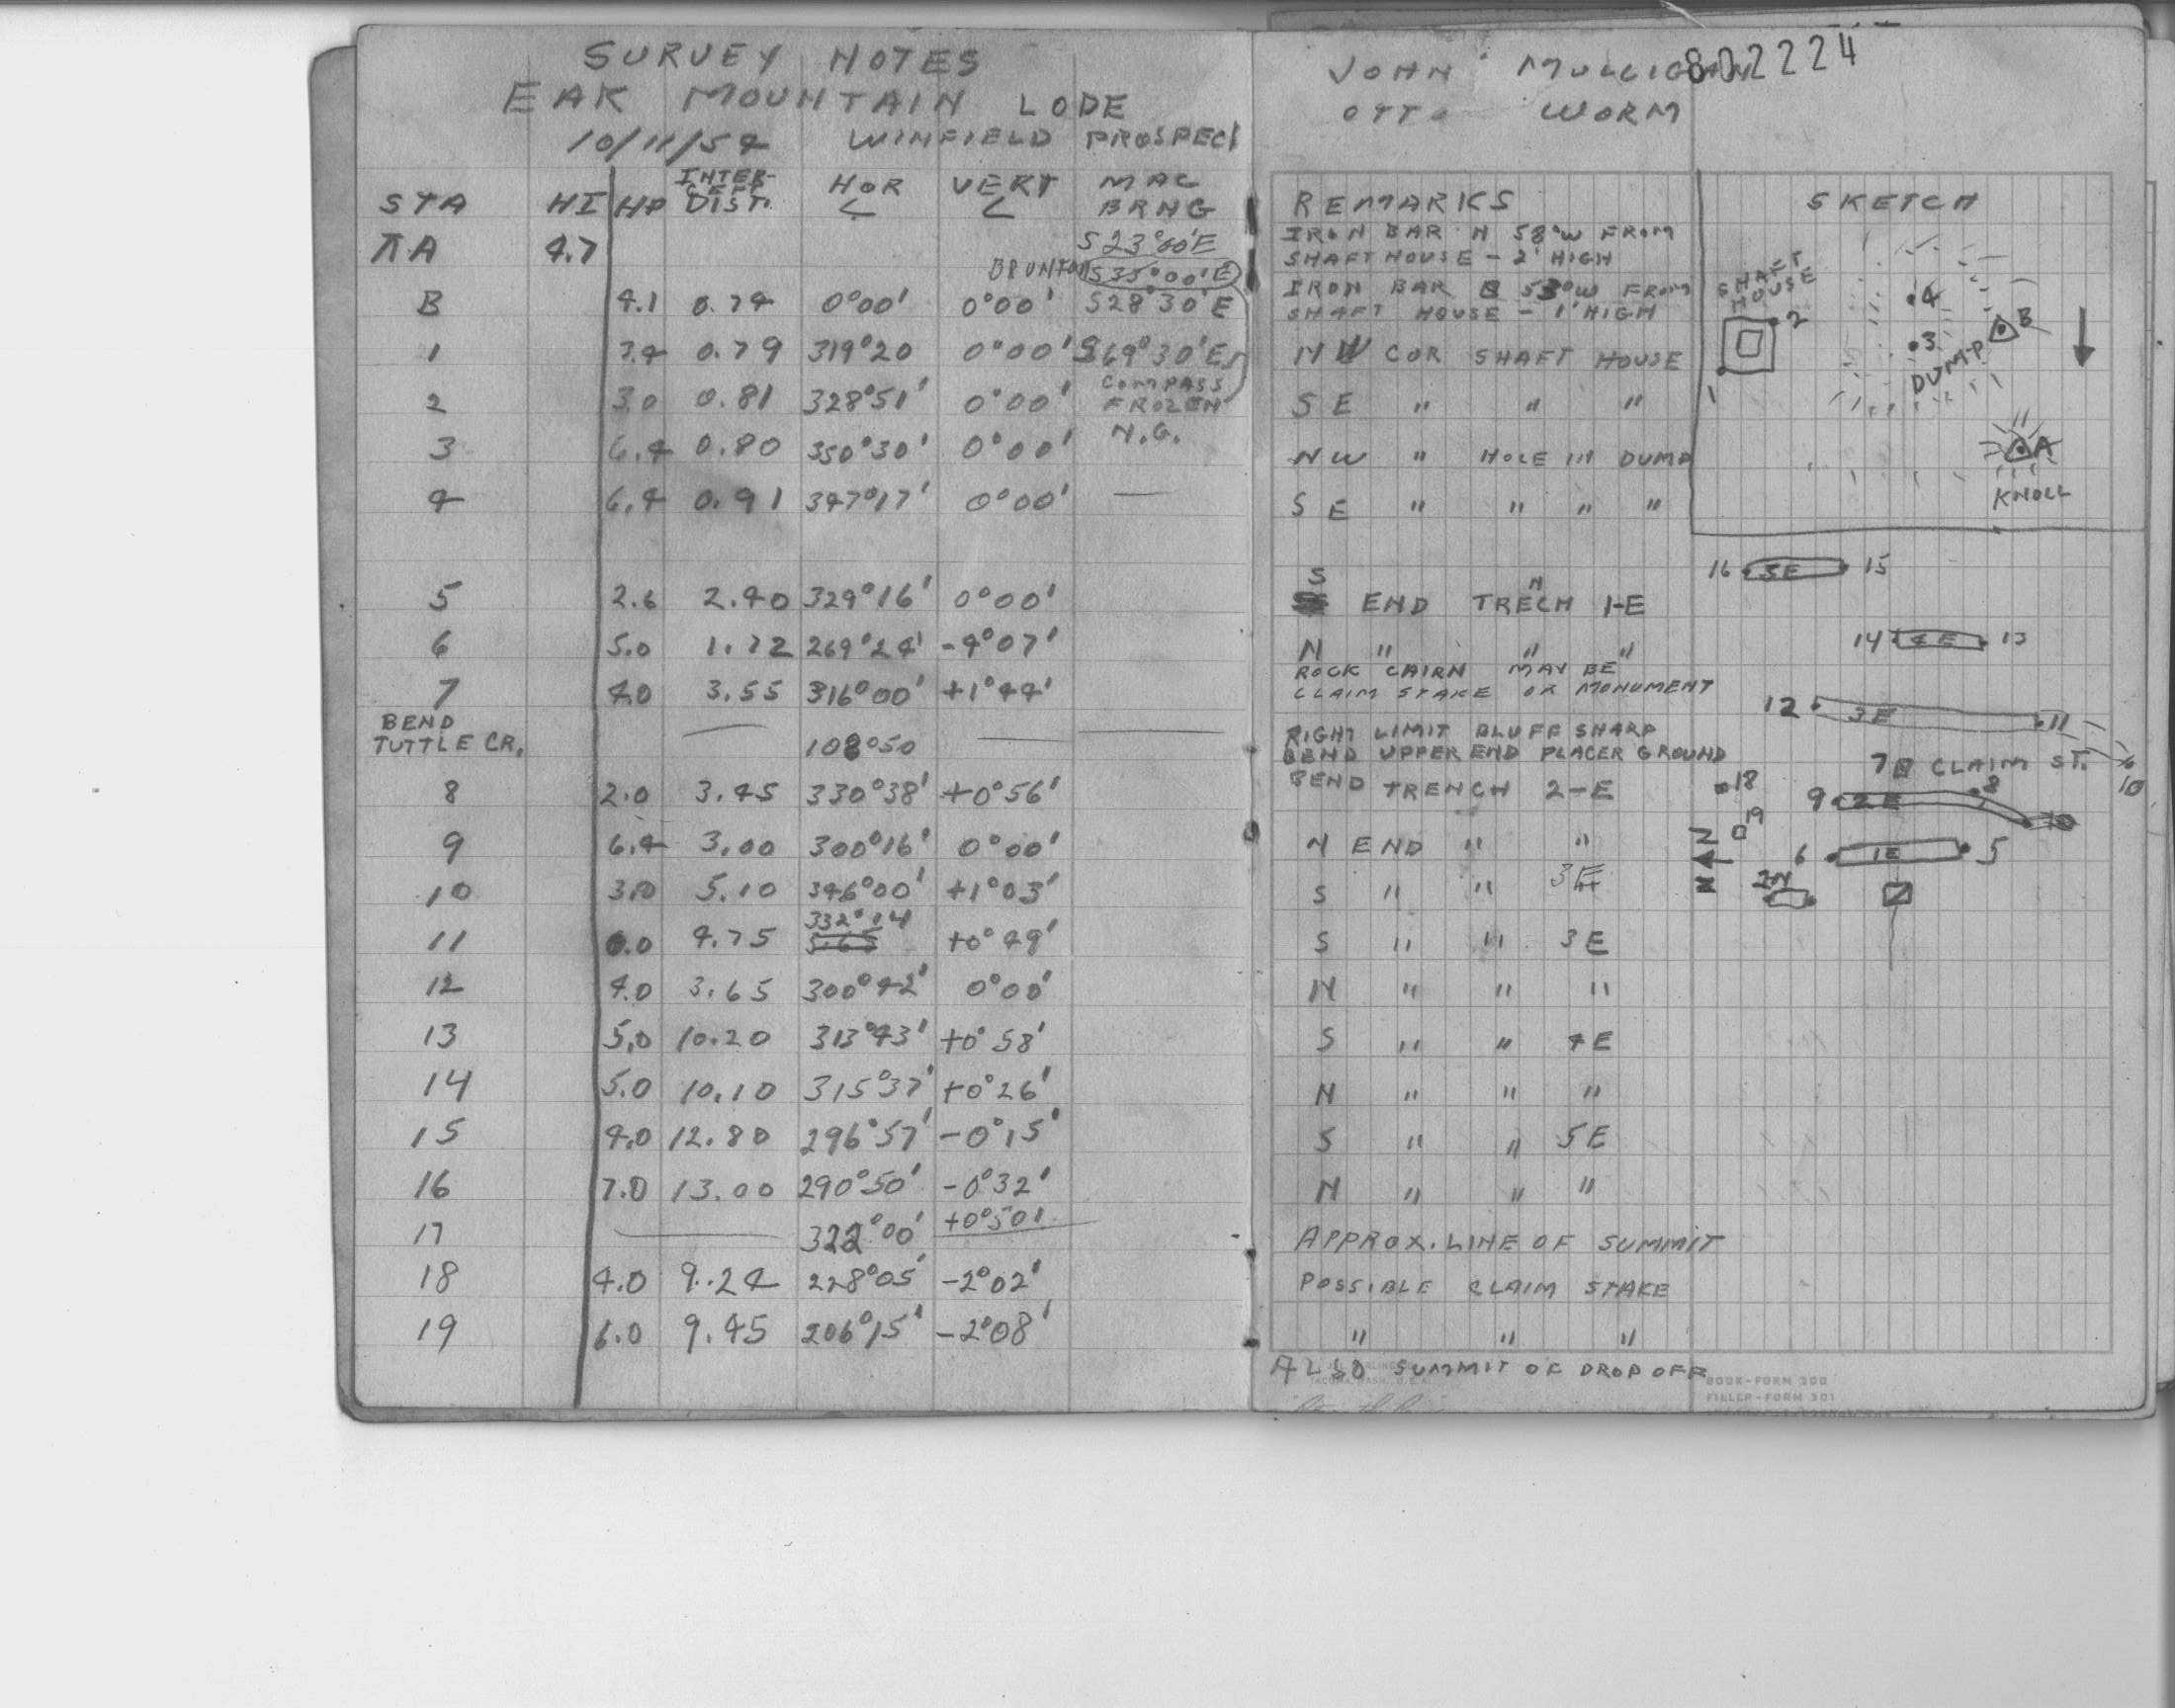 SURVEY NOTES
EAK MOUNTAIN LODE
10/11/54 WINFIELD PROSPECT
STA HI HP INTER-CEPT DIST. HOR ∠ VERT ∠ MAG BRNG
⊼A 4.7 S23°00'E
BRUNTON S35°00'E
B 4.1 0.74 0°00' 0°00' S28°30'E
1 7.4 0.79 319°20 0°00' S69°30'E
2 3.0 0.81 328°51' 0°00' COMPASS FROZEN
3 6.4 0.80 350°30' 0°00' N.G.
4 6.4 0.91 347°17' 0°00' —
5 2.6 2.40 329°16' 0°00'
6 5.0 1.72 269°24' -4°07'
7 4.0 3.55 316°00' +1°44'
BEND
TUTTLE CR. — 108°50 — —
8 2.0 3.45 330°38' +0°56'
9 6.4 3.00 300°16' 0°00'
10 3.0 5.10 346°00' +1°03'
11 6.0 4.75 332°14 +0°49'
12 4.0 3.65 300°42' 0°00'
13 5.0 10.20 313°43' +0°58'
14 5.0 10.10 315°37' +0°26'
15 4.0 12.80 296°57' -0°15'
16 7.0 13.00 290°50' -0°32'
17 — 322°00' +0°50'
18 4.0 9.24 228°05' -2°02'
19 6.0 9.45 206°15' -2°08'
JOHN MULLIGAN
802224
OTTO WORM
REMARKS
IRON BAR N 58°W FROM
SHAFT HOUSE - 2' HIGH
IRON BAR S 53°W FROM
SHAFT HOUSE - 1' HIGH
NW COR SHAFT HOUSE
SE " " "
NW " HOLE IN DUMP
SE " " " "
S END TRENCH 1-E
N " " "
ROCK CAIRN MAY BE
CLAIM STAKE OR MONUMENT
RIGHT LIMIT BLUFF SHARP
BEND UPPER END PLACER GROUND
BEND TRENCH 2-E
N END " "
S " " 3E
S " " 3E
N " " "
S " " 4E
N " " "
S " " 5E
N " " "
APPROX. LINE OF SUMMIT
POSSIBLE CLAIM STAKE
" " "
ALSO SUMMIT OF DROP OFF
SKETCH
SHAFT
HOUSE
2
1
4
3
B
DUMP
A
KNOLL
16 5E 15
14 4E 13
12 3E 11
7 CLAIM ST.
10
18
9 2E 8
10
19
N
6 1E 5
2N
BOOK-FORM 300
FILLER-FORM 301